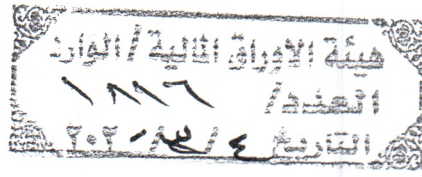 هيئة الاوراق المالية/الوارد
العدد/ ١٨١٦
التاريخ ٤/٣/٢٠٢٠